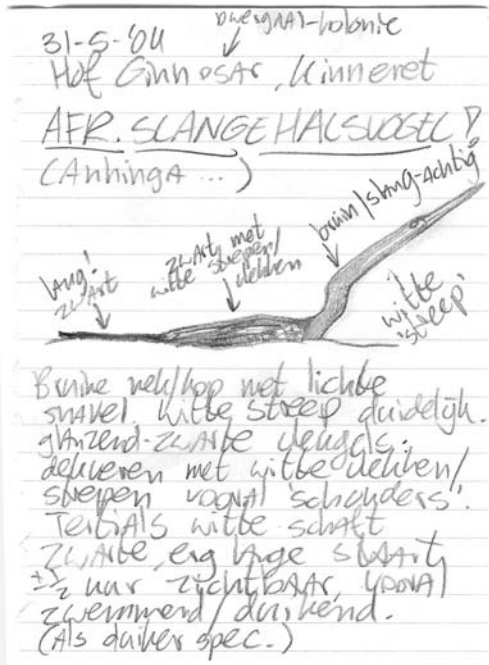 31-5-'04 Dwergaal-kolonie
Hof Ginnosar, Kinneret
AFR. SLANGEHALSVOGEL!
(Anhinga ...)
lang!
zwart
zwart, met
witte strepen/
vlekken
bruin/slang-achtig
witte
'streep'
Bruine nek/kop met lichte
snavel, witte streep duidelijk.
glanzend-zwarte vleugels.
dekveren met witte vlekken/
strepen vooral 'schouders'.
Tertials witte schaft
zwarte, erg lange staart,
± ½ uur zichtbaar, vooral
zwemmend/duikend.
(Als duiker spec.)